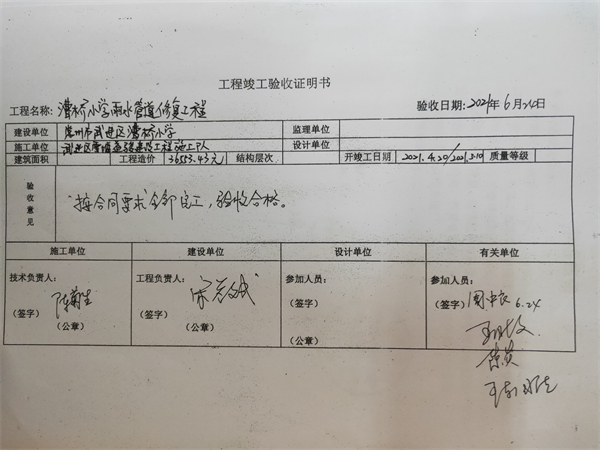 工程竣工验收证明书
工程名称: 漕桥小学雨水管道修复工程 验收日期: 2021年6月24日
建设单位 常州市武进区漕桥小学 监理单位
施工单位 武进区 工程施工队 设计单位
建筑面积 工程造价 36553.43元 结构层次 开竣工日期 2021.4.30/2021.5.10 质量等级
验收意见 按合同要求全部完工,验收合格。
施工单位 建设单位 设计单位 有关单位
技术负责人: 工程负责人: 参加人员: 参加人员:
(签字) (签字) (签字) (签字) 6.24
(公章) (公章) (公章)